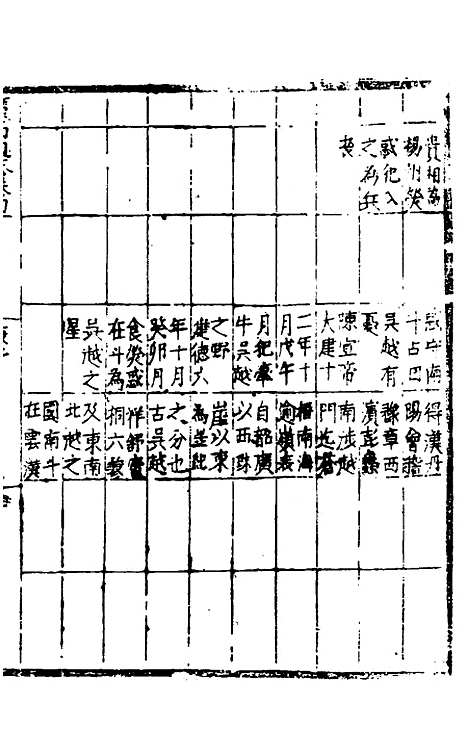 貴相為
楊州熒
惑犯入
之為兵
喪
惑守
斗占曰
吳越有
憂
陳宣帝
大建十
二年十
月戊午
月犯牽
牛吳越
之野
建德六
年十月
癸卯月
食熒惑
在斗為
吳越之
星
得漢丹
陽會稽
豫章西
濱彭蠡
南涉越
門迄蒼
梧南海
逾嶺表
自韶廣
以西珠
崖以東
為星紀
之分也
古吳越
舒廬
桐六蓼
及東南
北越之
國南斗
在雲漢